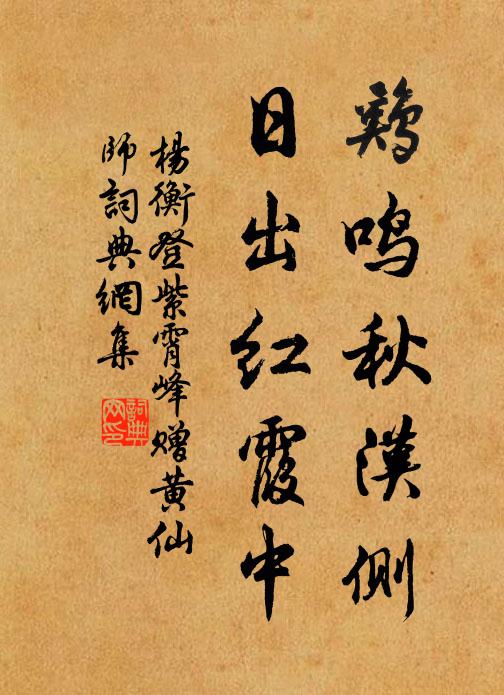 鷄鳴秋漢側
日出紅霞中
楊衡登紫霄峰贈黄仙
師詞典網集
詞典
网印